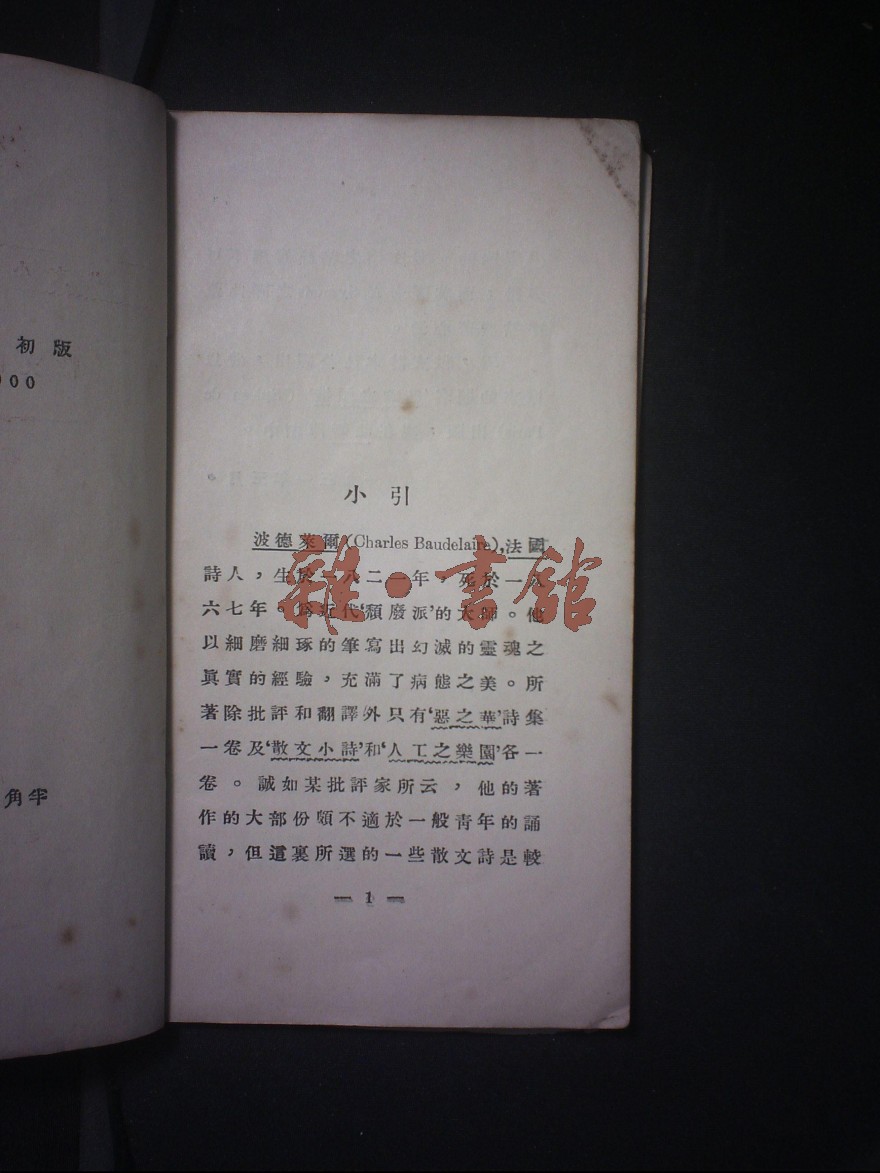 初版
000
角半
小引
波德萊爾(Charles Baudelaire),法國
詩人，生於一八二一年，死於一八
六七年。爲近代‘頹廢派’的大師。他
以細磨細琢的筆寫出幻滅的靈魂之
眞實的經驗，充滿了病態之美。所
著除批評和翻譯外只有‘惡之華’詩集
一卷及‘散文小詩’和‘人工之樂園’各一
卷。誠如某批評家所云，他的著
作的大部份頗不適於一般青年的誦
讀，但這裏所選的一些散文詩是較
— 1 —
雜·書館